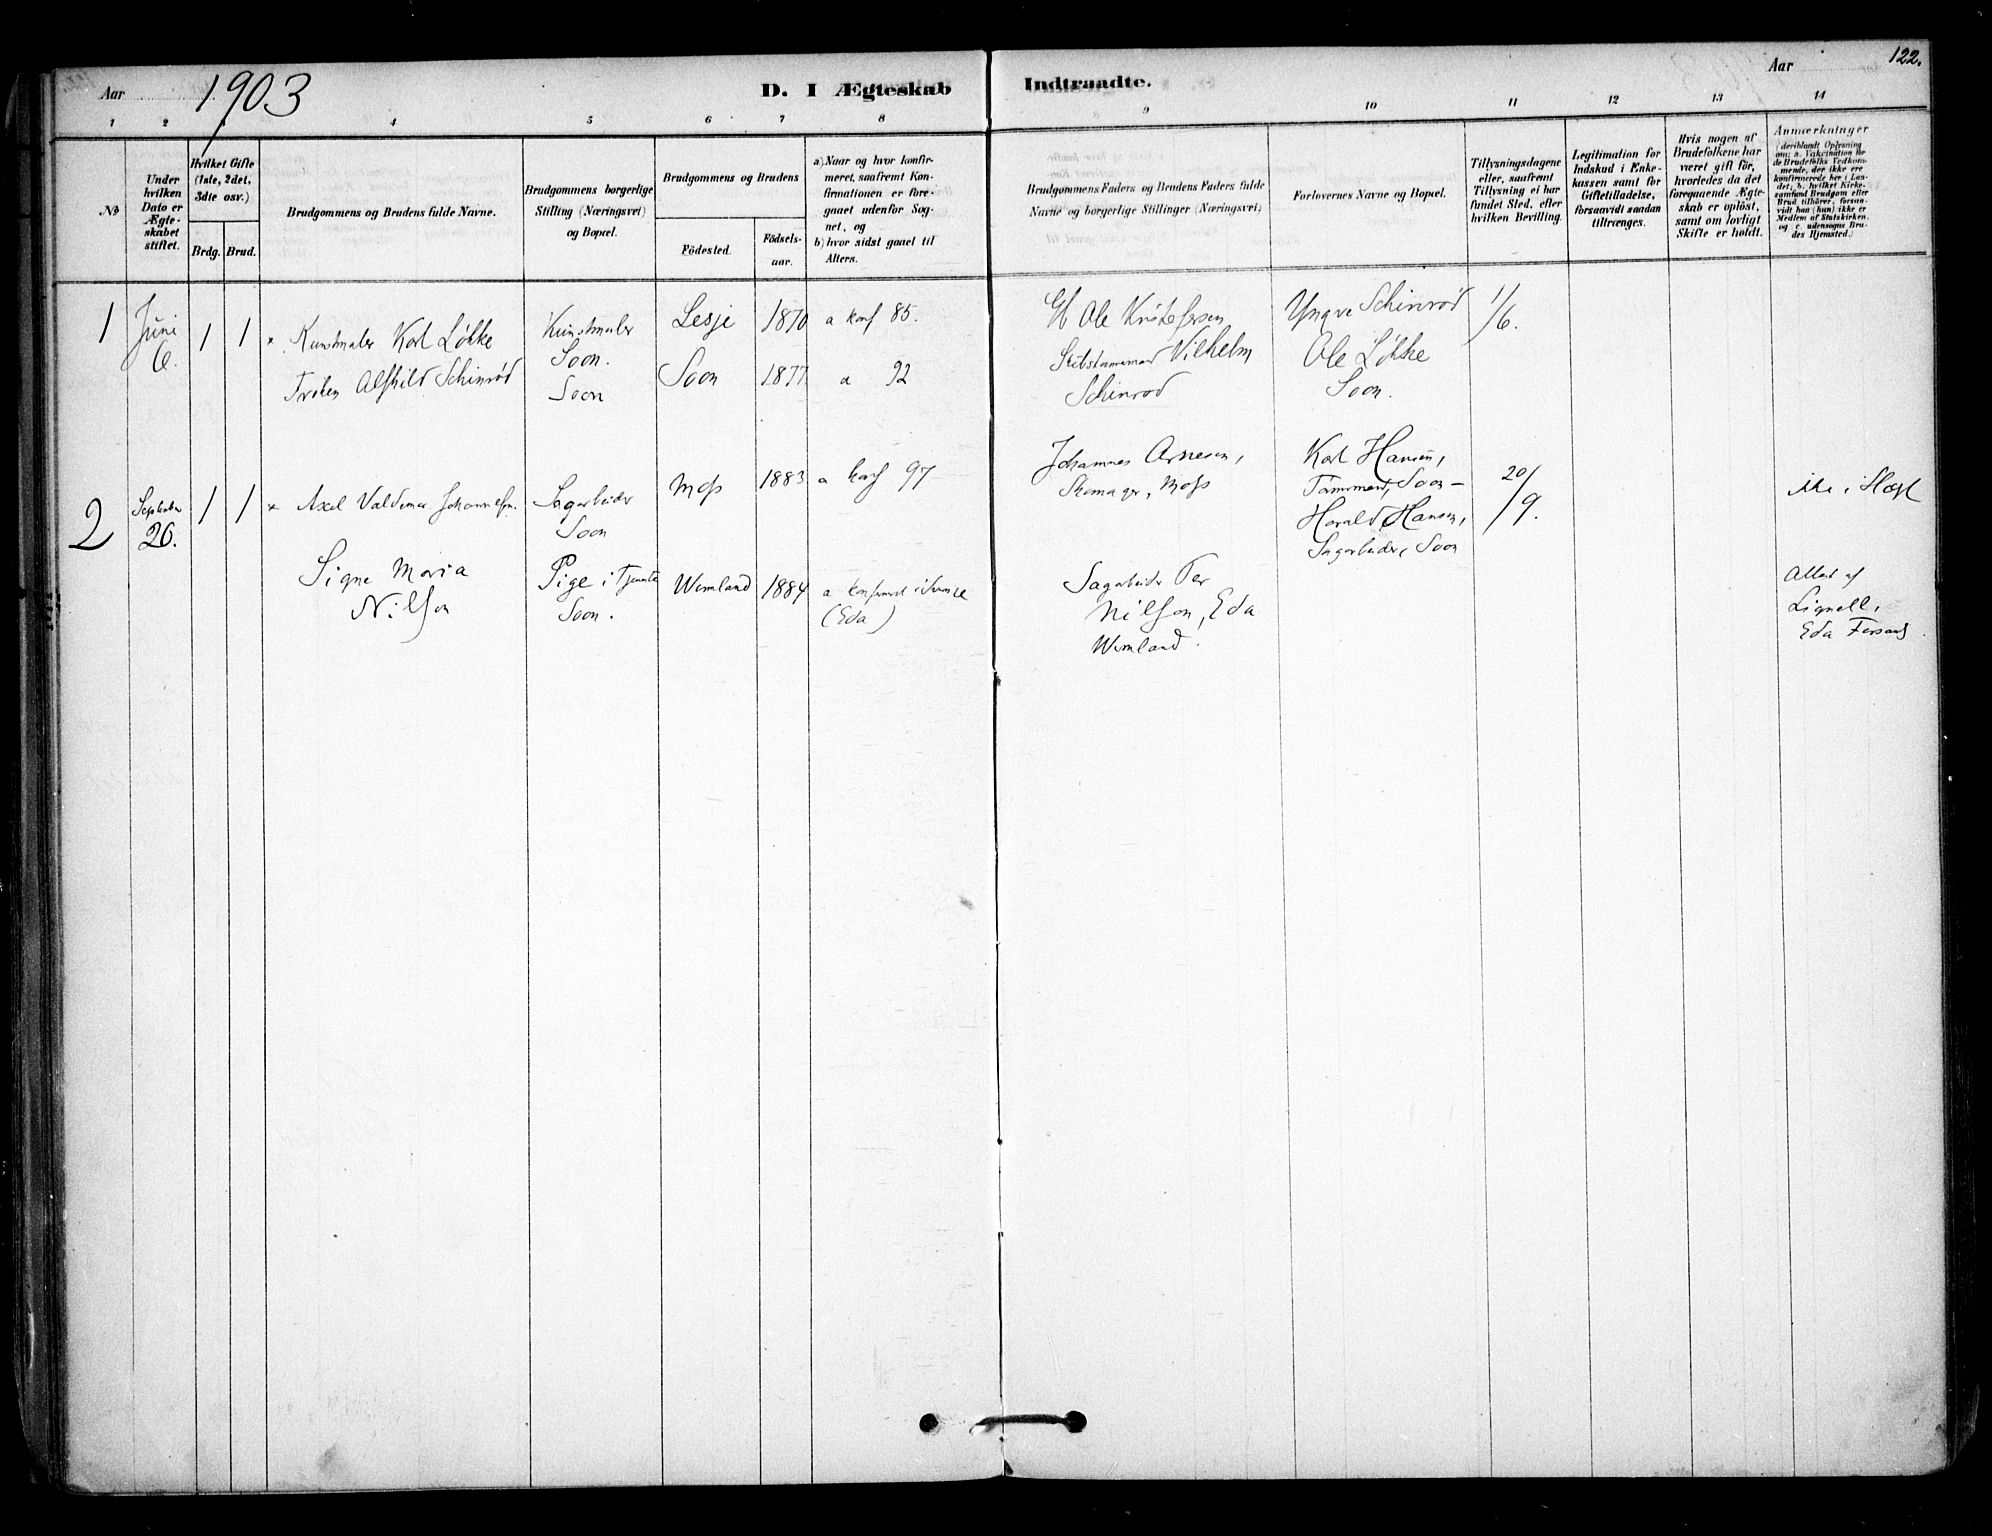 Aar 1903 D. I Ægteskab Indtraadte. Aar 122.
1 2 3 4 5 6 7 8 9 10 11 12 13 14
No
Under hvilken Dato er Ægteskabet stiftet.
Hvilket Gifte (1ste, 2det, 3die osv.)
Brdg. Brud.
Brudgommens og Brudens fulde Navne.
Brudgommens borgerlige Stilling (Næringsvei) og Bopæl.
Brudgommens og Brudens
Födested. Födsels-aar.
a) Naar og hvor konfir-
meret, saafremt Kon-
firmationen er fore-
gaaet udenfor Sog-
net, og
b) hvor sidst gaaet til
Alters.
Brudgommens Faders og Brudens Faders fulde
Navne og borgerlige Stillinger (Næringsvei)
Forlovernes Navne og Bopæl.
Tillysningsdagene
eller, saafremt
Tillysning ei har
fundet Sted, efter
hvilken Bevilling.
Legitimation for
Indskud i Enke-
kassen samt for
Giftetilladelse,
forsaavidt saadan
tiltrænges.
Hvis nogen af
Brudefolkene har
været gift för,
hvorledes da det
foregaaende Ægte-
skab er oplöst,
samt om lovligt
Skifte er holdt.
Anmærkninger
(deriblandt Oplysning
om: a. Vakcination for
de Brudefolks Vedkom-
mende, der ikke ere
konfirmerede her i Lan-
det; b. hvilket Kirke-
samfund Brudgom eller
Brud tilhörer, forsaa-
vidt han (hun) ikke er
Medlem af Statskirken,
og c. udensogns Bru-
des Hjemsted.)
1
Juni
6.
1 1
× Kunstmaler Karl Løkke
Frøken Alfhild Schinrød
Kunstmaler
Soon.
Soon
Lesje 1870 a konf 85.
Soon 1877 a 92
Ole Kristofersen
Vilhelm
Schinrød
Yngve Schinrød
Ole Løkke
Soon.
1/6.
2
September
26.
1 1
× Axel Valdemar Johannesen.
Signe Maria
Nilsson
Sagarbeider
Soon
Pige i Tjeneste
Soon.
Moss 1883 a konf 97
Wermland 1884 a konfirmeret i Sverige
(Eda)
Johannes Arnesen,
Skomager, Moss
Sagarbeider Per
Nilsson, Eda
Wermland.
Karl Hansen,
Tømmermand, Soon –
Harald Hansen,
Sagarbeider, Soon
20/9.
Attest af
Lignell,
Eda